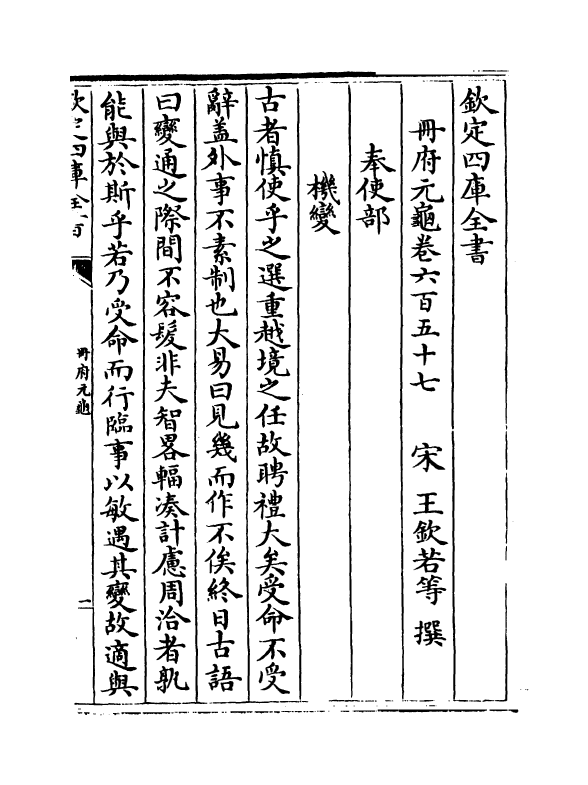 欽定四庫全書
冊府元龜卷六百五十七　宋　王欽若等　撰
奉使部
機變
古者慎使乎之選重越境之任故聘禮大矣受命不受
辭盖外事不素制也大易曰見幾而作不俟終日古語
曰變通之際間不容髮非夫智畧輻凑計慮周洽者孰
能與於斯乎若乃受命而行臨事以敏遇其變故適與
欽定四庫全書
冊府元龜
一